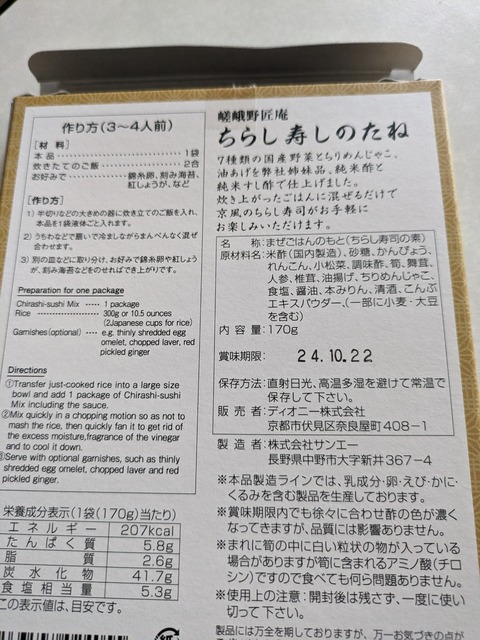 作り方(3～4人前)
[材 料]
本品 1袋
炊きたてのご飯 2合
お好みで 錦糸卵、刻み海苔、
紅しょうが、など
[作り方]
1) 半切りなどの大きめの器に炊き立てのご飯を入れ、
本品を1袋液体ごと入れます。
2) うちわなどで扇いで冷ましながらまんべんなく混ぜ
合わせます。
3) 別の皿などに取り分け、お好みで錦糸卵や紅しょう
が、刻み海苔などをのせればでき上がりです。
Preparation for one package
Chirashi-sushi Mix ----- 1 package
Rice 300g or 10.5 ounces
(2Japanese cups for rice)
Garnishes(optional) ---- e.g. thinly shredded egg
omelet, chopped laver, red
pickled ginger
Directions
①Transfer just-cooked rice into a large size
bowl and add 1 package of Chirashi-sushi
Mix including the sauce.
②Mix quickly in a chopping motion so as not to
mash the rice, then quickly fan it to get rid of
the excess moisture,fragrance of the vinegar
and to cool it down.
③Serve with optional garnishes, such as thinly
shredded egg omelet, chopped laver and red
pickled ginger.
栄養成分表示(1袋(170g)当たり)
エネルギー 207kcal
たんぱく質 5.8g
脂質 2.6g
炭水化物 41.7g
食塩相当量 5.3g
この表示値は、目安です。
嵯峨野匠庵
ちらし寿しのたね
7種類の国産野菜とちりめんじゃこ、
油あげを弊社姉妹品、純米酢と
純米すし酢で仕上げました。
炊き上がったごはんに混ぜるだけで
京風のちらし寿司がお手軽に
お楽しみいただけます。
名称:まぜごはんのもと(ちらし寿司の素)
原材料名:米酢(国内製造)、砂糖、かんぴょう、
れんこん、小松菜、調味酢、筍、舞茸、
人参、椎茸、油揚げ、ちりめんじゃこ、
食塩、醤油、本みりん、清酒、こんぶ
エキスパウダー、(一部に小麦・大豆
を含む)
内容量:170g
賞味期限: 24.10.22
保存方法:直射日光、高温多湿を避けて常温で
保存して下さい。
販売者:ディオニー株式会社
京都市伏見区奈良屋町408-1
製造者:株式会社サンエー
長野県中野市大字新井367-4
※本品製造ラインでは、乳成分・卵・えび・かに・
くるみを含む製品を生産しております。
※賞味期限内でも徐々に合わせ酢の色が濃く
なってきますが、品質には影響ありません。
※まれに筍の中に白い粒状の物が入っている
場合がありますが筍に含まれるアミノ酸(チロ
シン)ですので食べても何ら問題ありません。
※使用上の注意:開封後は残さず、一度に使い
切って下さい。
製品には万全を期しておりますが、万一お気づきの点が